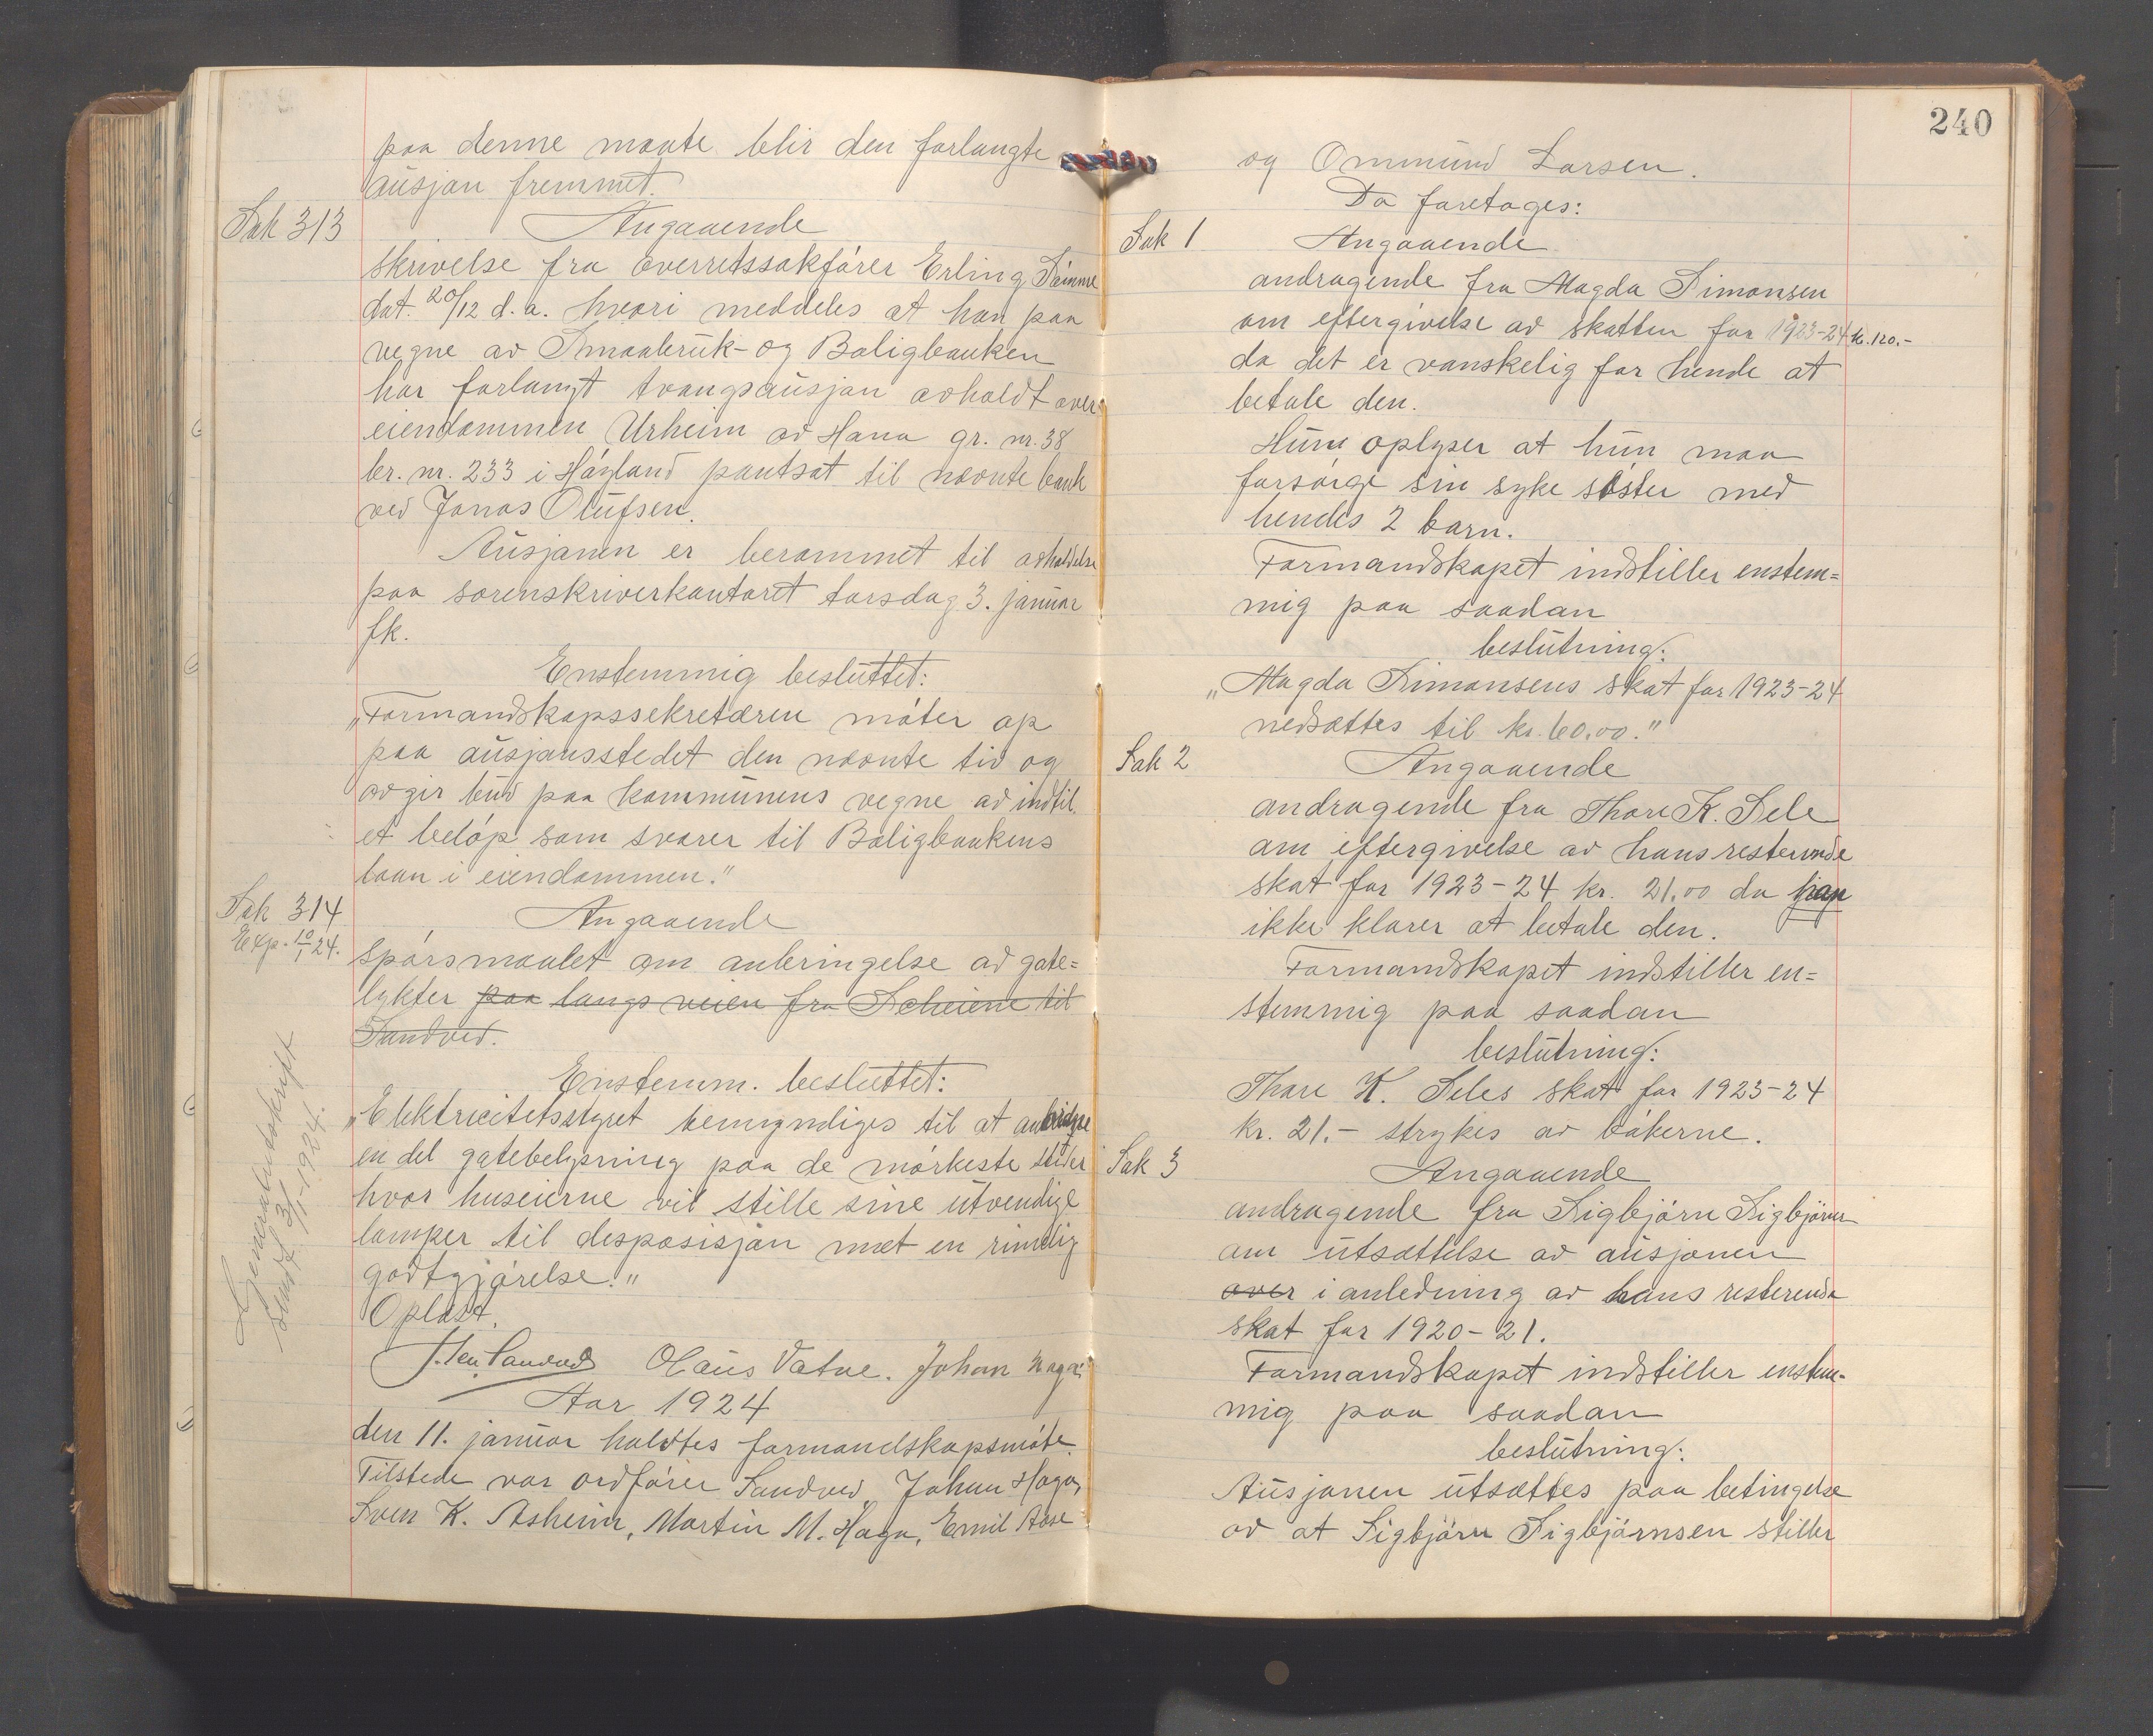 paa denne maate blir den forlangte
ausjon fremmet.
Sak 313
Angaaende
skrivelse fra overretssakfører Erling Sømme
dat. 20/12 d. a. hvori meddeles at han paa
vegne av Smaabruk- og Boligbanken
har forlangt tvangsausjon avholdt over
eiendommen Urheim av Hana gr. nr. 38
br. nr. 233 i Høyland pantsat til nævnte bank
ved Jonas Olufsen.
Ausjonen er berammet til avholdelse
paa sorenskriverkontoret torsdag 3. januar
fk.
Enstemmig besluttet:
„Formandskapssekretæren møter op
paa ausjonsstedet den nævnte tid og
avgir bud paa kommunens vegne av indtil
et beløp som svarer til Boligbankens
laan i eiendommen."
Sak 314
Exp. 10/1 24.
Angaaende
spørsmaalet om anbringelse av gate=
lykter paa langs veien fra Scheiene til
Sandved.
Enstemm. besluttet:
„Elektricitetsstyret bemyndiges til at anbringe
en del gatebelysning paa de mørkeste steder
hvor huseierne vil stille sine utvendige
lamper til desposisjon mot en rimelig
godtgjørelse."
Oplæst.
Generalutskrift
sendt 31/1-1924.
Sandved Olaus Vatne. Johan Haga
Aar 1924
den 11. januar holdtes formandskapsmøte.
Tilstede var ordfører Sandved, Johan Haga,
Sven K. Asheim, Martin M. Haga, Emil Aase
240
og Ommund Larsen.
Da foretages:
Sak 1
Angaaende
andragende fra Magda Simonsen
om eftergivelse av skatten for 1923-24 kr. 120.-
da det er vanskelig for hende at
betale den.
Hun oplyser at hun maa
forsørge sin syke søster med
hendes 2 barn.
Formandskapet indstiller enstem=
mig paa saadan
beslutning:
„Magda Simonsens skat for 1923-24
nedsættes til kr. 60.00."
Sak 2
Angaaende
andragende fra Thore K. Sele
om eftergivelse av hans resterende
skat for 1923-24 kr. 21.00 da han
ikke klarer at betale den.
Formandskapet indstiller en=
stemmig paa saadan
beslutning:
Thore K. Seles skat for 1923-24
kr. 21.- strykes av bøkerne.
Sak 3
Angaaende
andragende fra Sigbjørn Sigbjørnsen
om utsættelse av ausjonen
over i anledning av hans resterende
skat for 1920-21.
Formandskapet indstiller enstem-
mig paa saadan
beslutning:
Ausjonen utsættes paa betingelse
av at Sigbjørn Sigbjørnsen stiller